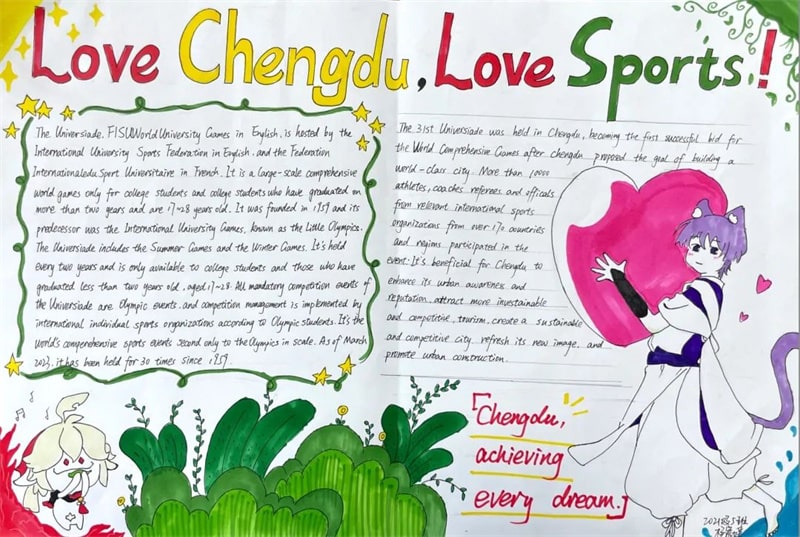 Love Chengdu, Love Sports!
The Universiade. FISUWorldUniversity Games in English, is hosted by the
International University Sports Federation in English, and the Federation
Internationaledu Sport Universitaire in French. It is a large-scale comprehensive
world games only for college students and college students who have graduated on
more than two years and are 17-28 years old. It was founded in 1959 and its
predecessor was the International University Games, known as the Little Olympics.
The Universiade includes the Summer Games and the Winter Games. It's held
every two years and is only available to college students and those who have
graduated less than two years old, aged 17-28. All mandatory competition events of
the Universiade are Olympic events, and competition management is implemented by
international individual sports organizations according to Olympic students. It's the
world's comprehensive sports events second only to the Olympics in scale. As of March
2023, it has been held for 30 times since 1959.
The 31st Universiade was held in Chengdu, becoming the first successful bid for
the World Comprehensive Games after chengdu proposed the goal of building a
world-class city. More than 10000
athletes, coaches referees and officals
from relevant international sports
organizations from over 170 countries
and regions participated in the
event. It's beneficial for Chengdu to
enhance its urban awareness and
reputation, attract more investable
and competitive, tourism, create a sustainable
and competitive city, refresh its new image, and
promote urban construction.
「Chengdu,
achieving
every dream.」
2021级5班